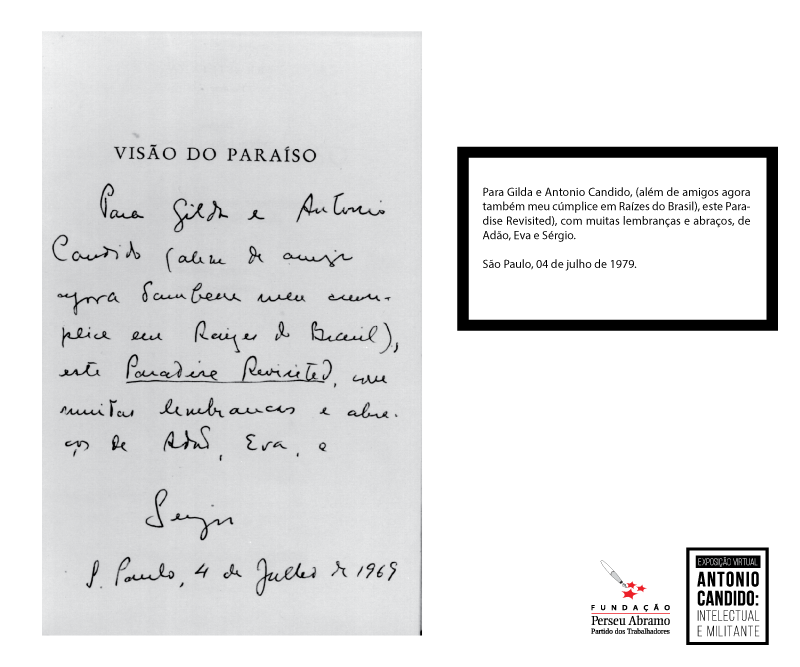 VISÃO DO PARAÍSO
Para Gilda e Antonio
Candido (alem de amigos
agora tambem meu cum-
plice em Raizes do Brasil),
este Paradise Revisited, com
muitas lembranças e abra-
ços de Adão, Eva, e
Sergio
S. Paulo, 4 de Julho de 1969
Para Gilda e Antonio Candido, (além de amigos agora
também meu cúmplice em Raízes do Brasil), este Para-
dise Revisited), com muitas lembranças e abraços, de
Adão, Eva e Sérgio.
São Paulo, 04 de julho de 1979.
FUNDAÇÃO
Perseu Abramo
Partido dos Trabalhadores
EXPOSIÇÃO VIRTUAL
ANTONIO
CANDIDO:
INTELECTUAL
E MILITANTE